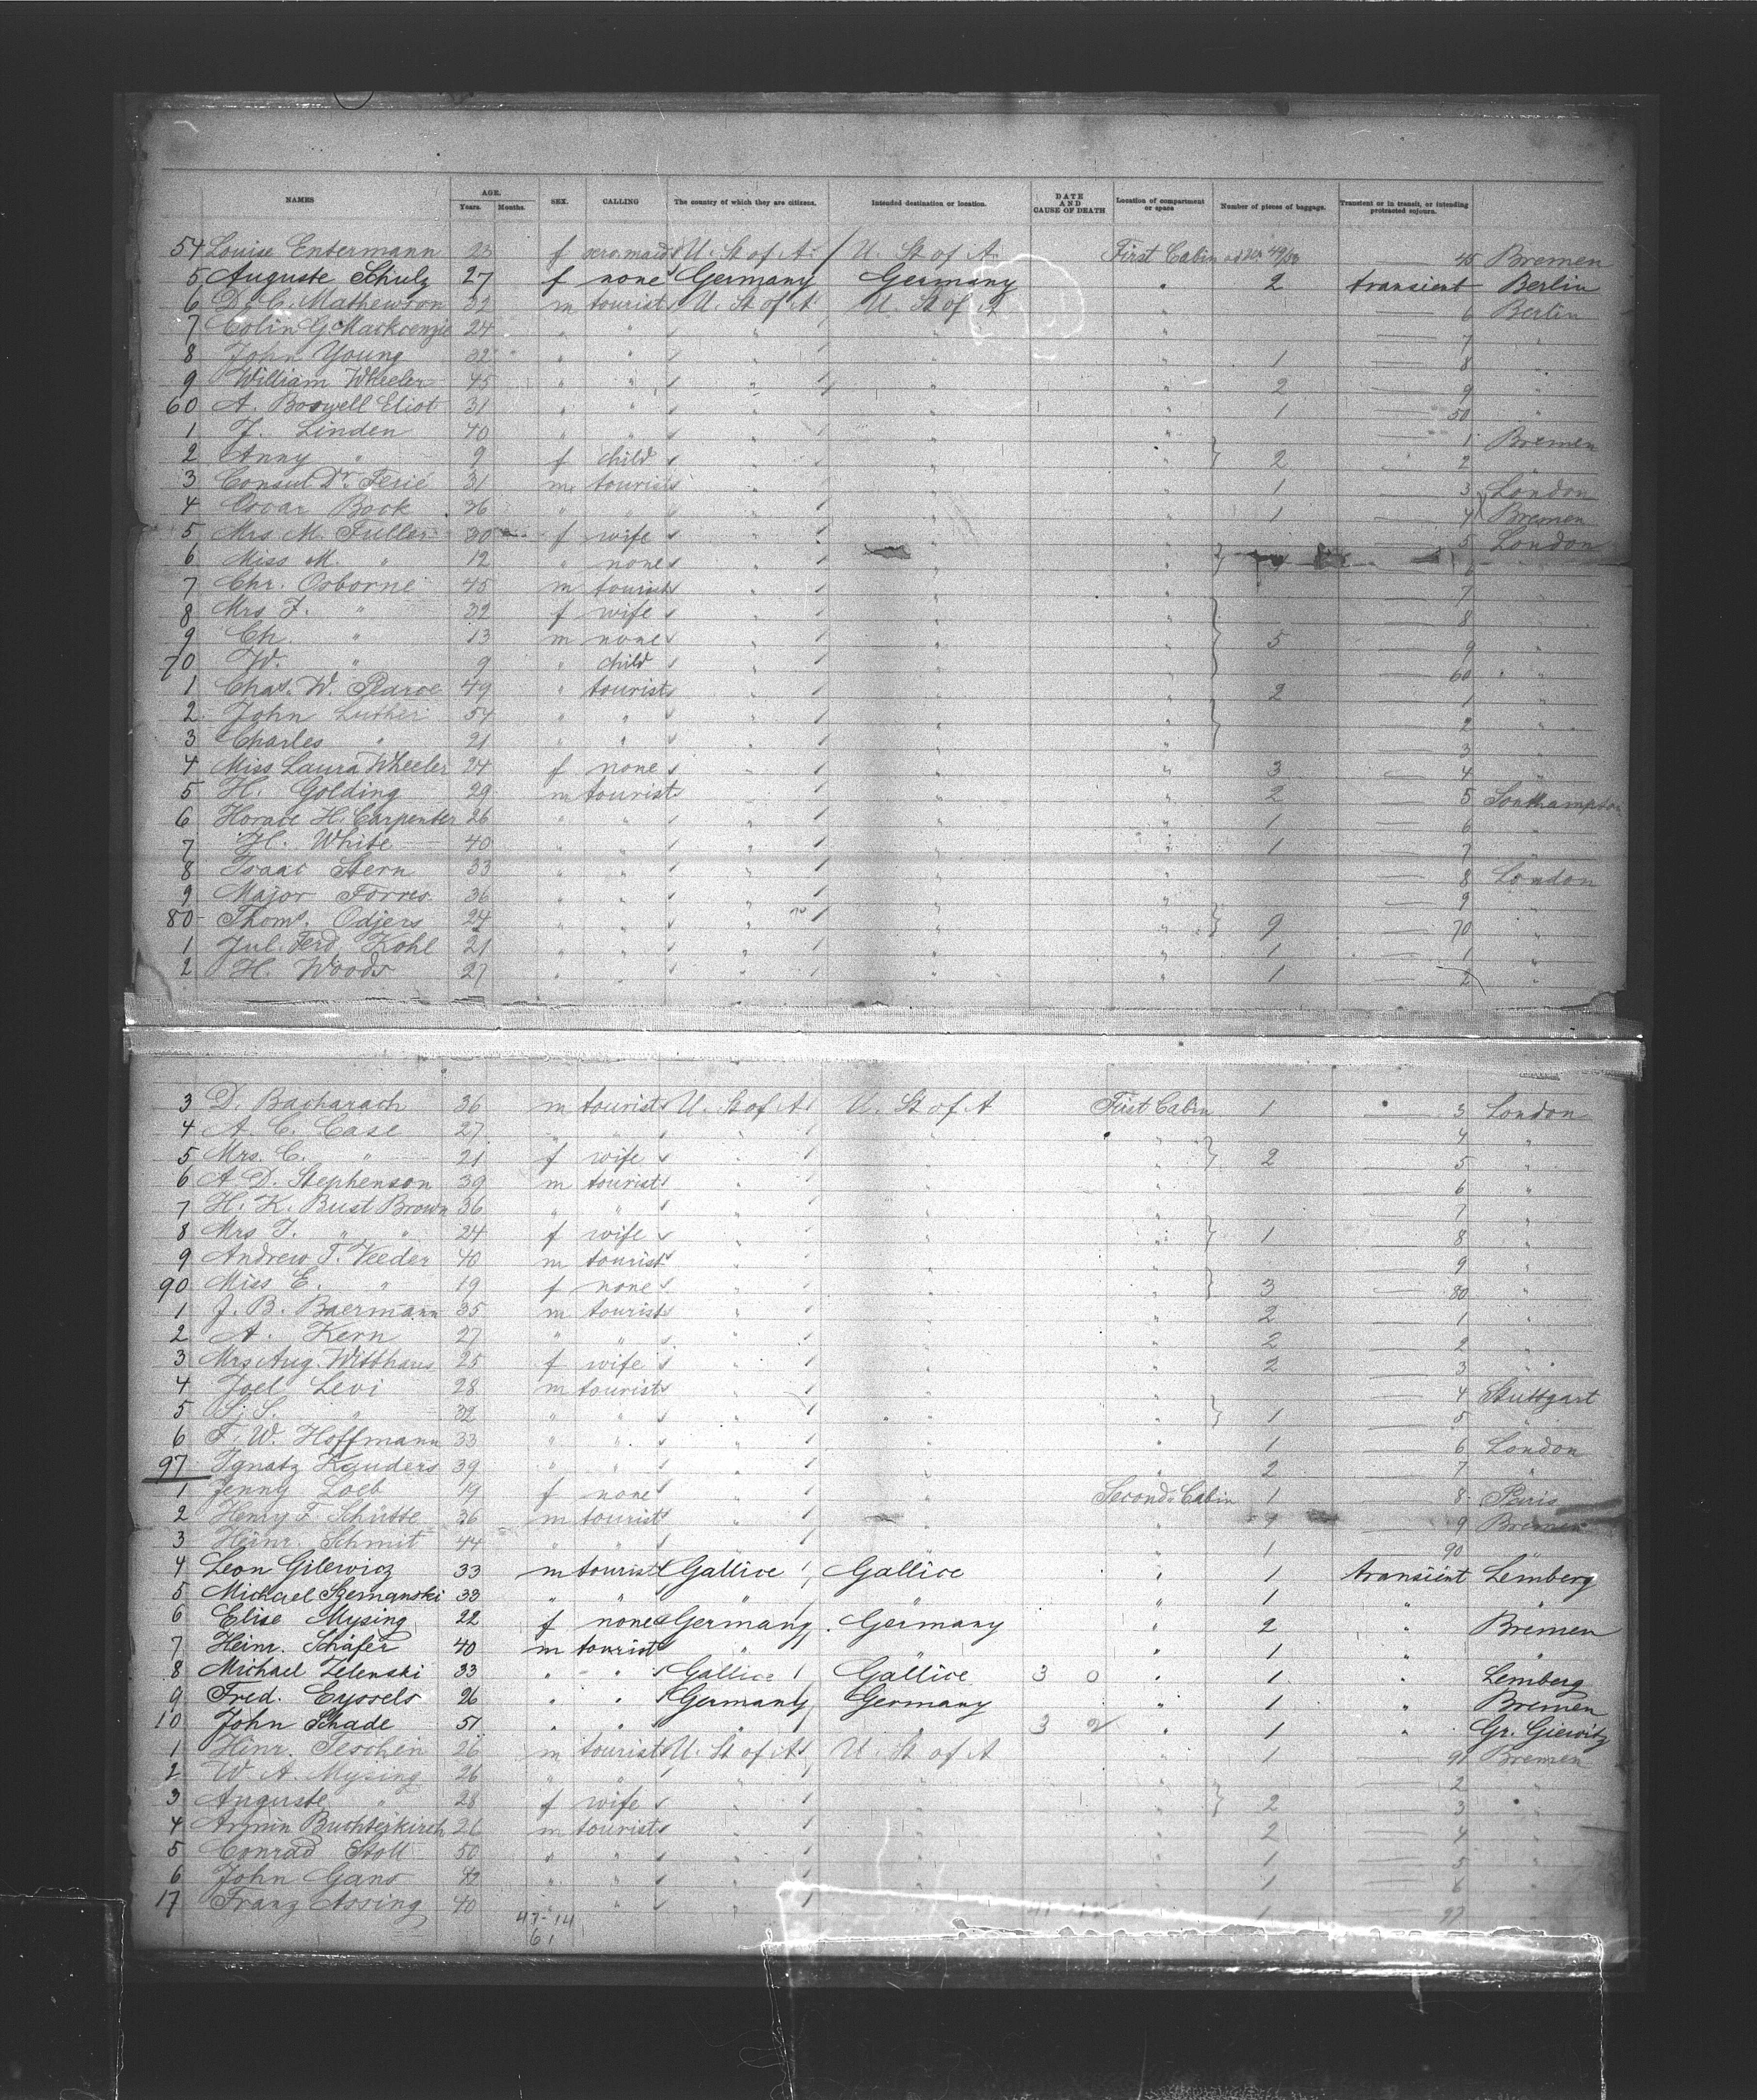 NAMES AGE. Years. Months. SEX. CALLING The country of which they are citizens. Intended destination or location. DATE AND CAUSE OF DEATH Location of compartment or space Number of pieces of baggage. Transient or in transit, or intending protracted sojourn.
54 Louise Entermann 23 f U. St of A. U. St of A. First Cabin 45 Bremen
5 Auguste Schulz 27 f none Germany Germany " 2 transient Berlin
6 D. C. Mathewson 32 m tourist U. St of A U. St of A " — 6 Berlin
7 Colin G. Mackenzie 24 " " " " " — 7 "
8 John Young 32 " " " " " 1 — 8 "
9 William Wheeler 45 " " " " " 2 — 9 "
60 A. Boswell Eliot 31 " " " " " 1 — 50 "
1 J. Linden 40 " " " " " — 1 Bremen
2 Anny " 9 f child " " " 2 — 2 "
3 Consul Dr. 31 m tourist " " " 1 — 3 London
4 Bock 36 " " " " " 1 — 4 Bremen
5 Mrs M. Fuller 30 f wife " " " — 5 London
6 Miss M. " 12 " none " " " 6 "
7 Chr. Osborne 45 m tourist " " " — 7 "
8 Mrs F. " 32 f wife " " " — 8 "
9 Ch. " 13 m none " " " 5 — 9 "
70 W. " 9 " child " " " — 60 "
1 Chas. W. Pearce 49 " tourist " " " 2 — 1 "
2 John Luther 54 " " " " " — 2 "
3 Charles " 21 " " " " " — 3 "
4 Miss Laura Wheeler 24 f none " " " 3 — 4 "
5 H. Golding 29 m tourist " " " 2 — 5 Southampton
6 Horace H. Carpenter 26 " " " " " 1 — 6 "
7 H. White 40 " " " " " 1 — 7 "
8 Isaac Stern 33 " " " " " — 8 London
9 Major Forres 36 " " " " " — 9 "
80 Thoms. Odjers 24 " " " " " 9 — 70 "
1 Jul. Ferd. Kohl 21 " " " " " 1 — 1 "
2 H. Woods 27 " " " " " 1 — 2 "
3 D. Bacharach 36 m tourist U. St of A U. St of A First Cabin 1 — 3 London
4 A. C. Case 27 " " " " " — 4 "
5 Mrs. C. " 21 f wife " " " 2 — 5 "
6 A. D. Stephenson 39 m tourist " " " — 6 "
7 H. K. Bust Brown 36 " " " " " — 7 "
8 Mrs F. " " 24 f wife " " " 1 — 8 "
9 Andrew T. Veeder 40 m tourist " " " — 9 "
90 Miss E. " 19 f none " " " 3 — 80 "
1 J. B. Baermann 35 m tourist " " " 2 — 1 "
2 A. Kern 27 " " " " " 2 — 2 "
3 Mrs Aug. Witthaus 25 f wife " " " 2 — 3 "
4 Joel Levi 28 m tourist " " " — 4 Stuttgart
5 S. " 32 " " " " " 1 — 5 "
6 F. W. Hoffmann 33 " " " " " 1 — 6 London
97 Ignatz Kauders 39 " " " " " 2 — 7 "
1 Jenny Loeb 19 f none " " Second Cabin 1 — 8 Paris
2 Henry F. Schütte 36 m tourist " " " — 9 Bremen
3 Heinr. Schmit 44 " " " " " 1 — 90 "
4 Leon Gilewicz 33 m tourist Gallice Gallice " 1 transient Lemberg
5 Michael Szemanski 33 " " " " " 1 " "
6 Elise Mysing 22 f none Germany Germany " 2 " Bremen
7 Heinr. Schäfer 40 m tourist " " " 1 " "
8 Michael Zelenski 33 " " Gallice Gallice 3 0 " 1 " Lemberg
9 Fred. Eyssels 26 " " Germany Germany " 1 " Bremen
10 John Schade 51 " " " " 3 2 " 1 " Gr. Gievitz
1 Hinr. Teschen 26 m tourist U. St of A U. St of A " 1 — 91 Bremen
2 W. A. Mysing 26 " " " " " — 2 "
3 Auguste " 28 f wife " " " 2 — 3 "
4 Armin Buchterkirch 26 m tourist " " " 2 — 4 "
5 Conrad Stoll 50 " " " " " 1 — 5 "
6 John Gans 42 " " " " " 1 — 6 "
17 Franz Assing 40 " " " " 1 — 97
47-14
61